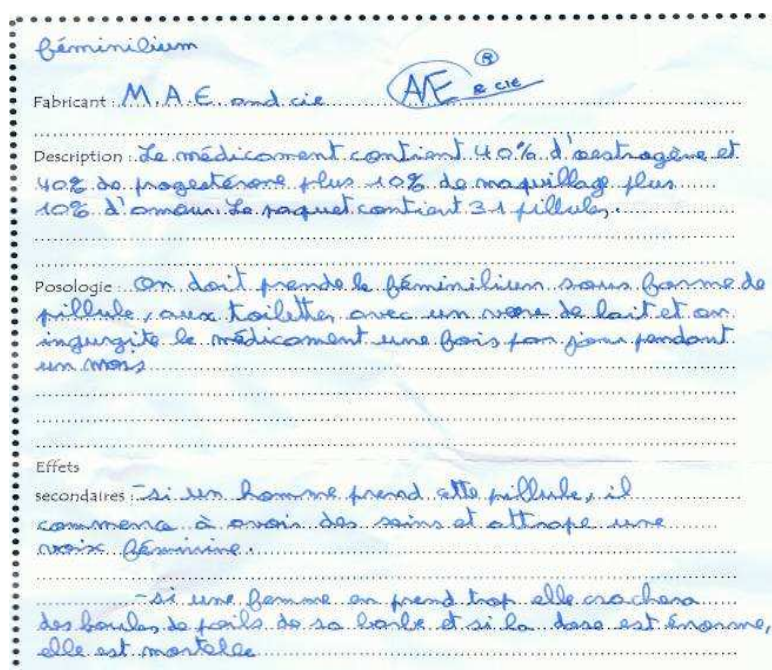 féminilium
Fabricant : M.A.E and cie AE & cie ®
Description : Le médicament contient 40% d'oestrogène et
40% de progestérone plus 10% de maquillage plus
10% d'amour. Le paquet contient 31 pillules.
Posologie : On doit prende le féminilium sous forme de
pillule, aux toilettes avec un verre de lait et on
ingurgite le médicament une fois par jour pendant
un mois
Effets
secondaires : -si un homme prend cette pillule, il
commence à avoir des seins et attrape une
voix féminine.
-si une femme en prend trop elle crachera
des boules de poils de sa barbe et si la dose est énorme,
elle est mortelle